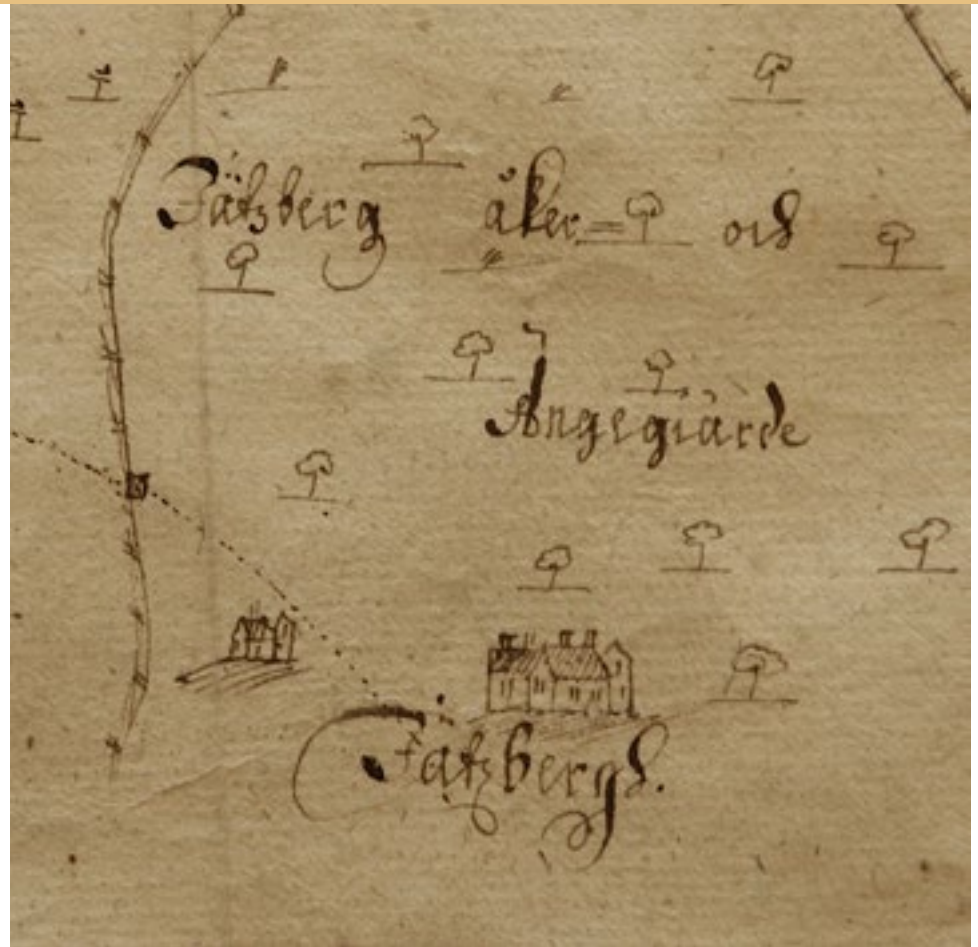 Fätzberg åker= och
Ängegiärde
Fätzbergh.